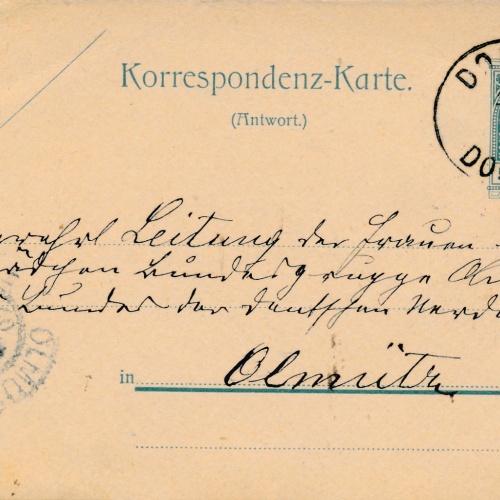 Korrespondenz-Karte.
(Antwort.)
DO
DO
geehrt Leitung der Frauen
Mädchen Bundesgruppe Ol
Bundes der Deutschen Nord
in Olmütz
OLMÜ